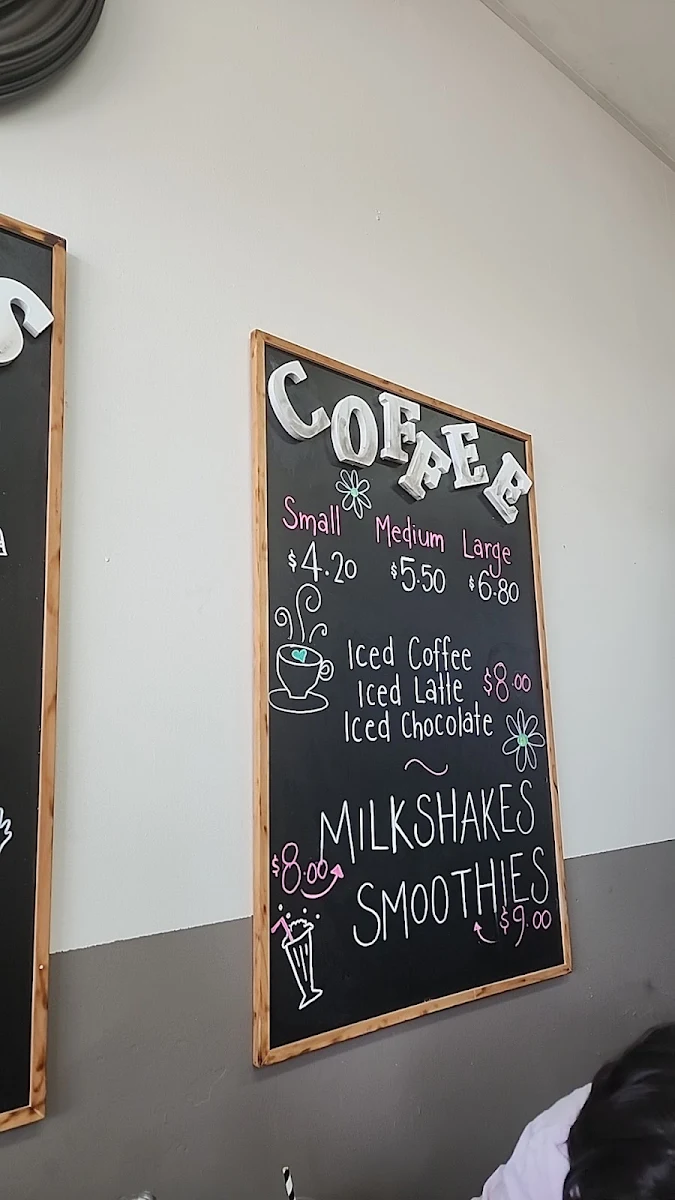 S
COFFEE
Small Medium Large
$4.20 $5.50 $6.80
Iced Coffee
Iced Latte $8.00
Iced Chocolate
MILKSHAKES
$8.00
SMOOTHIES
$9.00